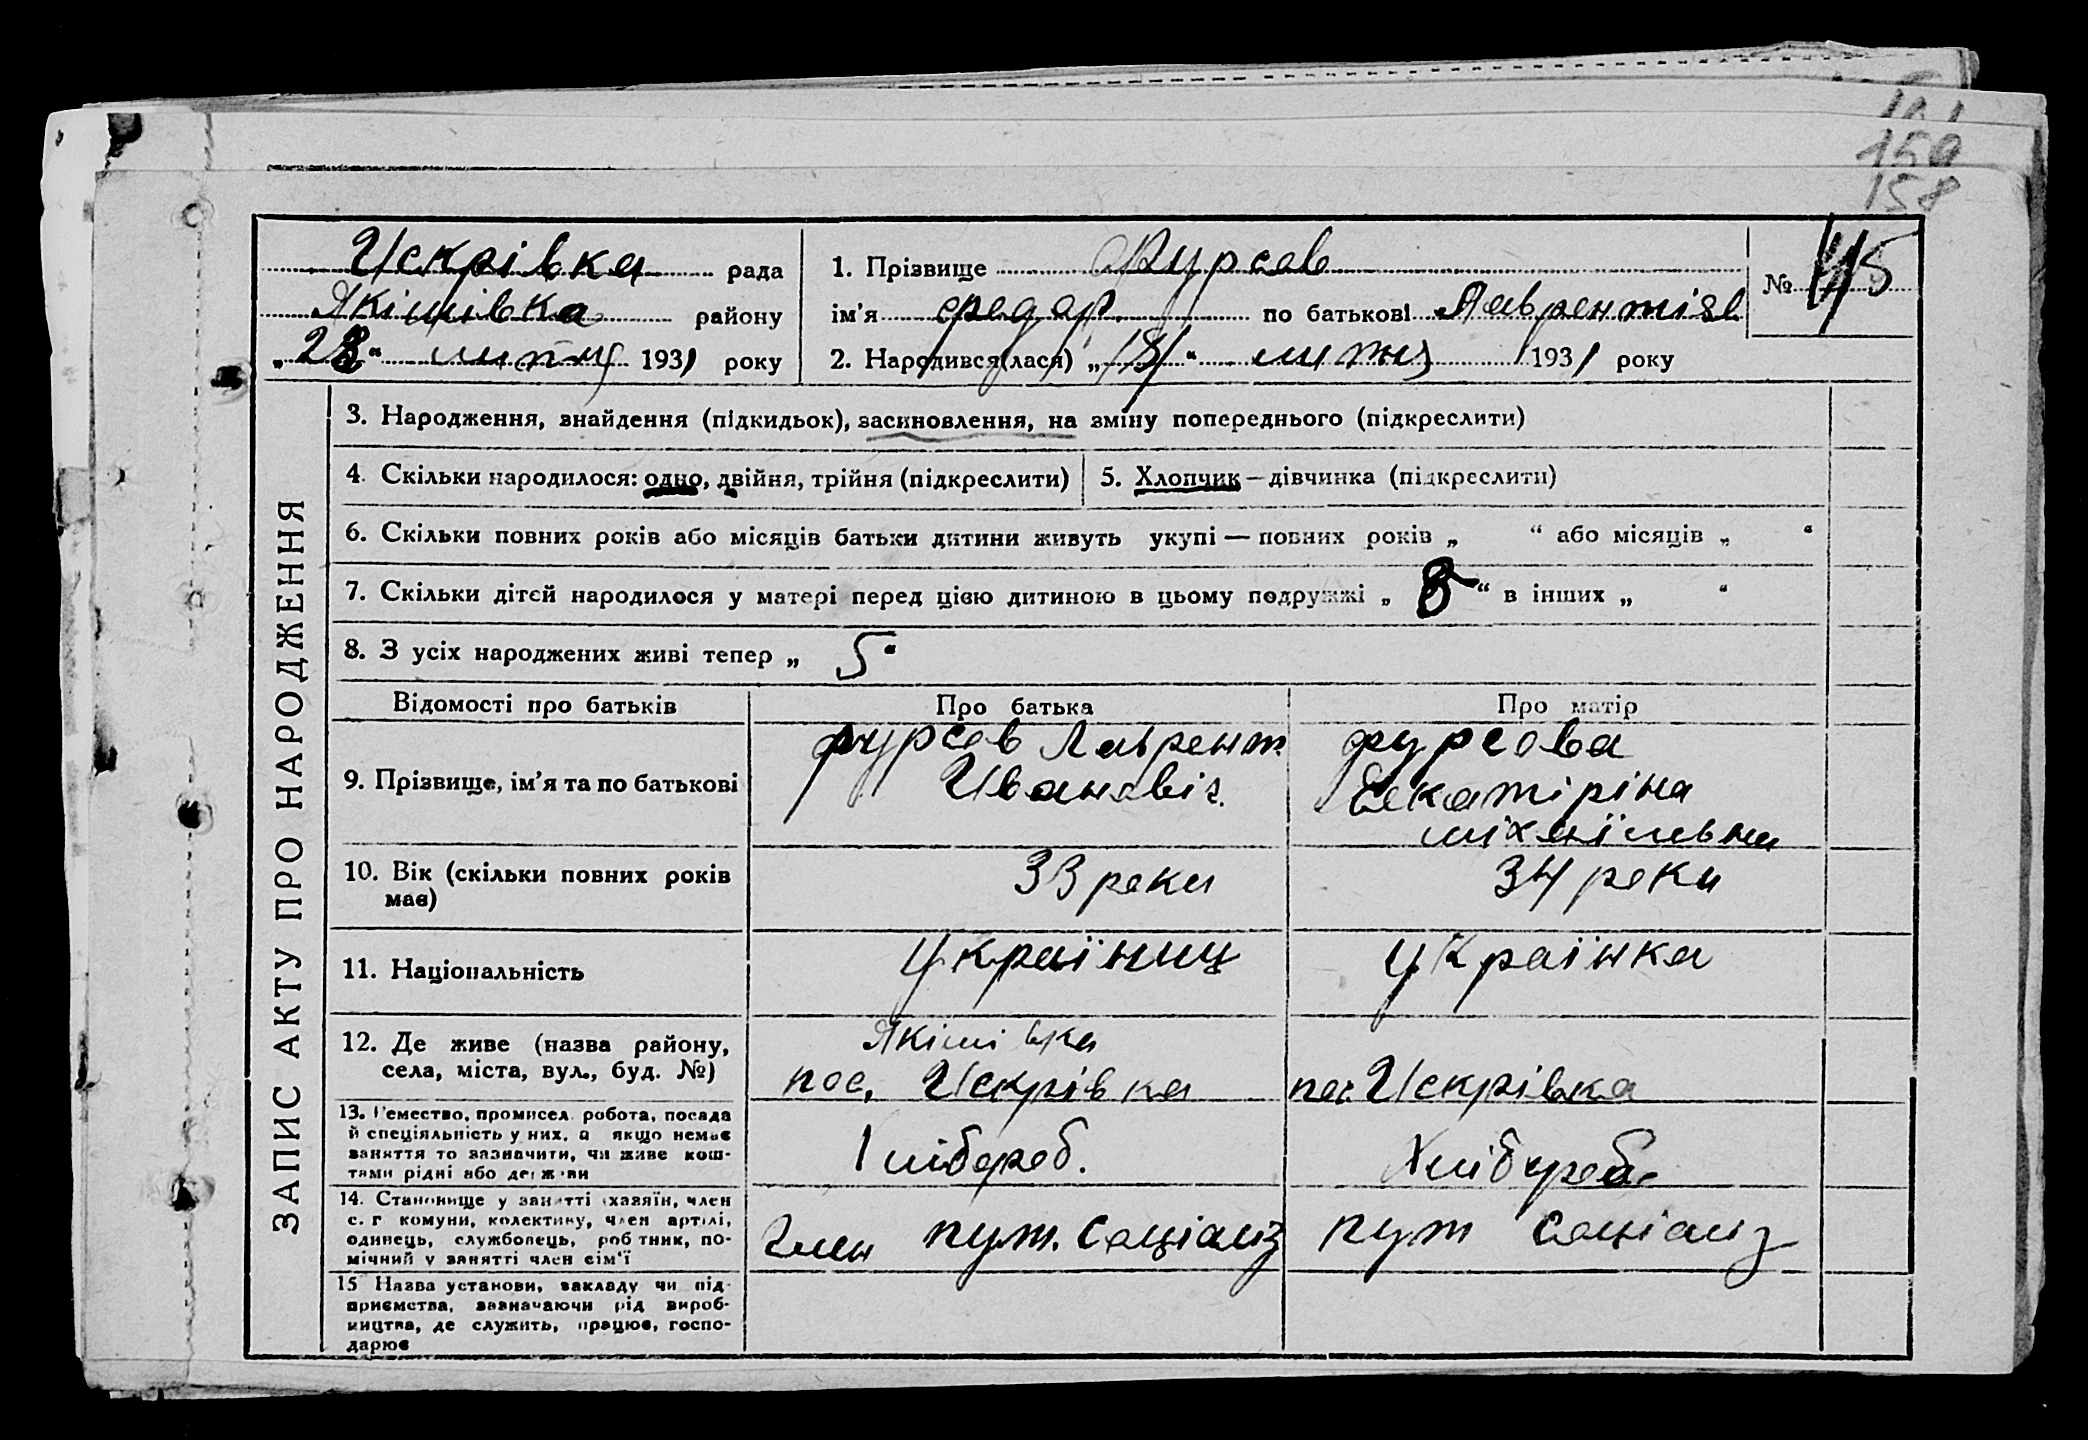 159
158
Искрівка рада
Якімівка району
„28“ люту 1931 року
1. Прізвище Фурсов
ім'я Федор по батькові Лаврентієв
2. Народився(лася) „18“ лютня 1931 року
№ 45
ЗАПИС АКТУ ПРО НАРОДЖЕННЯ
3. Народження, знайдення (підкидьок), засиновлення, на зміну попереднього (підкреслити)
4. Скільки народилося: одно, двійня, трійня (підкреслити)
5. Хлопчик — дівчинка (підкреслити)
6. Скільки повних років або місяців батьки дитини живуть укупі — повних років „ “ або місяців „ “
7. Скільки дітей народилося у матері перед цією дитиною в цьому подружжі „ 8 “ в інших „ “
8. З усіх народжених живі тепер „ 5 “
Відомості про батьків Про батька Про матір
9. Прізвище, ім'я та по батькові
Фурсов Лаврент.
Ивановіч.
Фурсова
Екатиріна
Міхаільвна
10. Вік (скільки повних років
має)
33 роки
34 роки
11. Національність
Україниц
Українка
12. Де живе (назва району,
села, міста, вул., буд. №)
Якімівка
пос. Искрівка
пос. Искрівка
13. Ремество, промисел, робота, посада
й спеціяльність у них, а якщо немає
заняття то зазначити, чи живе кош-
тами рідні або держави
Хлібороб.
Хлібороб.
14. Становище у занятті (хазяїн, член
с. г комуни, колективу, член артілі,
одинець, службовець, робітник, по-
мічний у занятті член сім'ї
член пут. Соціаліз
пут Соціаліз
15 Назва установи, закладу чи під-
приємства, зазначаючи рід вироб-
ництва, де служить, працює, госпо-
дарює